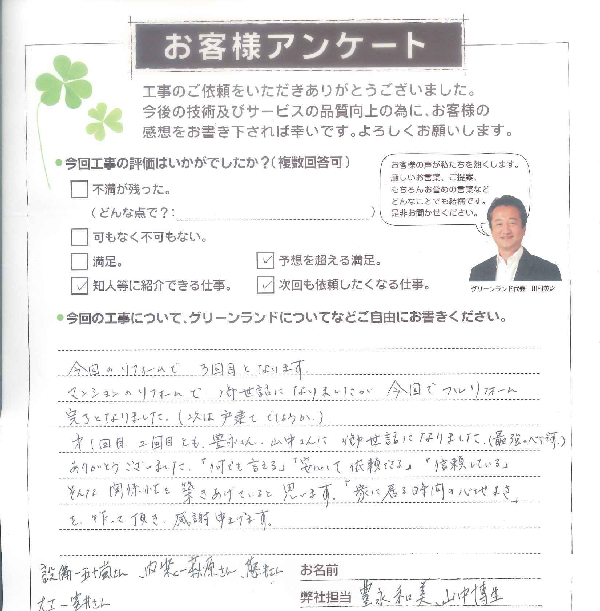 お客様アンケート
工事のご依頼をいただきありがとうございました。
今後の技術及びサービスの品質向上の為に、お客様の
感想をお書き下されば幸いです。よろしくお願いします。
今回工事の評価はいかがでしたか？（複数回答可）
不満が残った。
（どんな点で？： ）
可もなく不可もない。
満足。
予想を超える満足。
知人等に紹介できる仕事。
次回も依頼したくなる仕事。
お客様の声が私たちを熱くします。
厳しいお言葉、ご提案、
もちろんお誉めの言葉など
どんなことでも結構です。
是非お聞かせください。
グリーンランド代表
今回の工事について、グリーンランドについてなどご自由にお書きください。
今回のリフォームで 3回目となります。
マンションのリフォームで 御世話になりましたが 今回でフルリフォーム
完了となりました。（次は戸建てでしょうか。）
1回目 2回目とも、豊永さん、山中さんに 御世話になりました。
ありがとうございました。「何でも言える」「安心して依頼できる」「信頼している」
そんな 関係性を 築きあげていると 思います。「家に居る時間の心地よさ」
を 作って頂き、感謝申し上げます。
設備－五十嵐さん 内装－萩原さん
大工－
お名前
弊社担当 豊永和美、山中博生